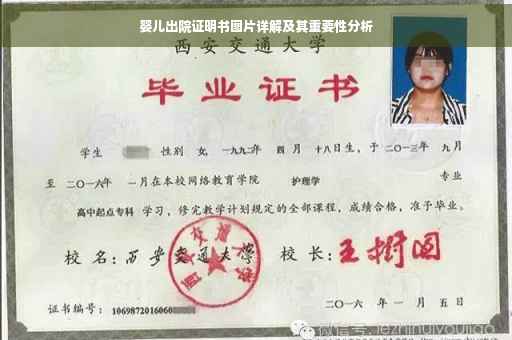 婴儿出院证明书图片详解及其重要性分析
西安交通大学
毕业证书
学生 性别 女,一九九二年 四月 十八日生,于二〇一三年 九月
至 二〇一六年 一月在本校网络教育学院 护理学 专业
高中起点专科 学习,修完教学计划规定的全部课程,成绩合格,准予毕业。
校 名:西安交通大学 校 长:王树国
证书编号:1069872016060
二〇一六 年 一 月 五 日
微信号:jiezhinuiyoujiao